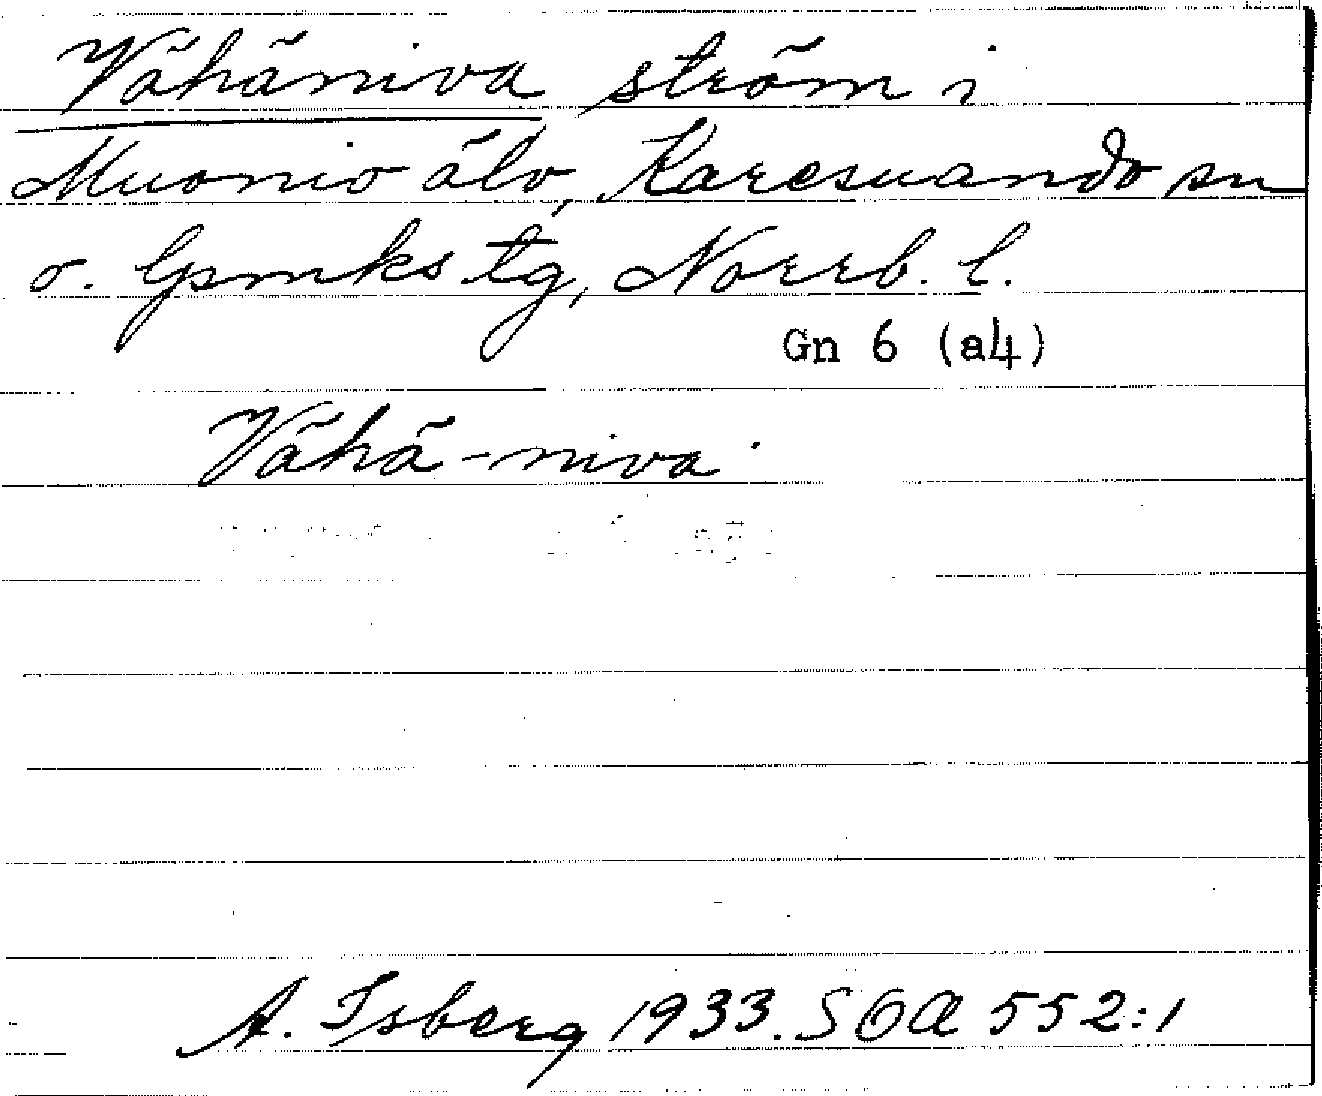 Vähäniva ström i
Muonio älv, Karesuando sn
o. lpmks tg, Norrb. l.
Gn 6 (a4)
Vähä-niva
A. Isberg 1933. SOA 552:1